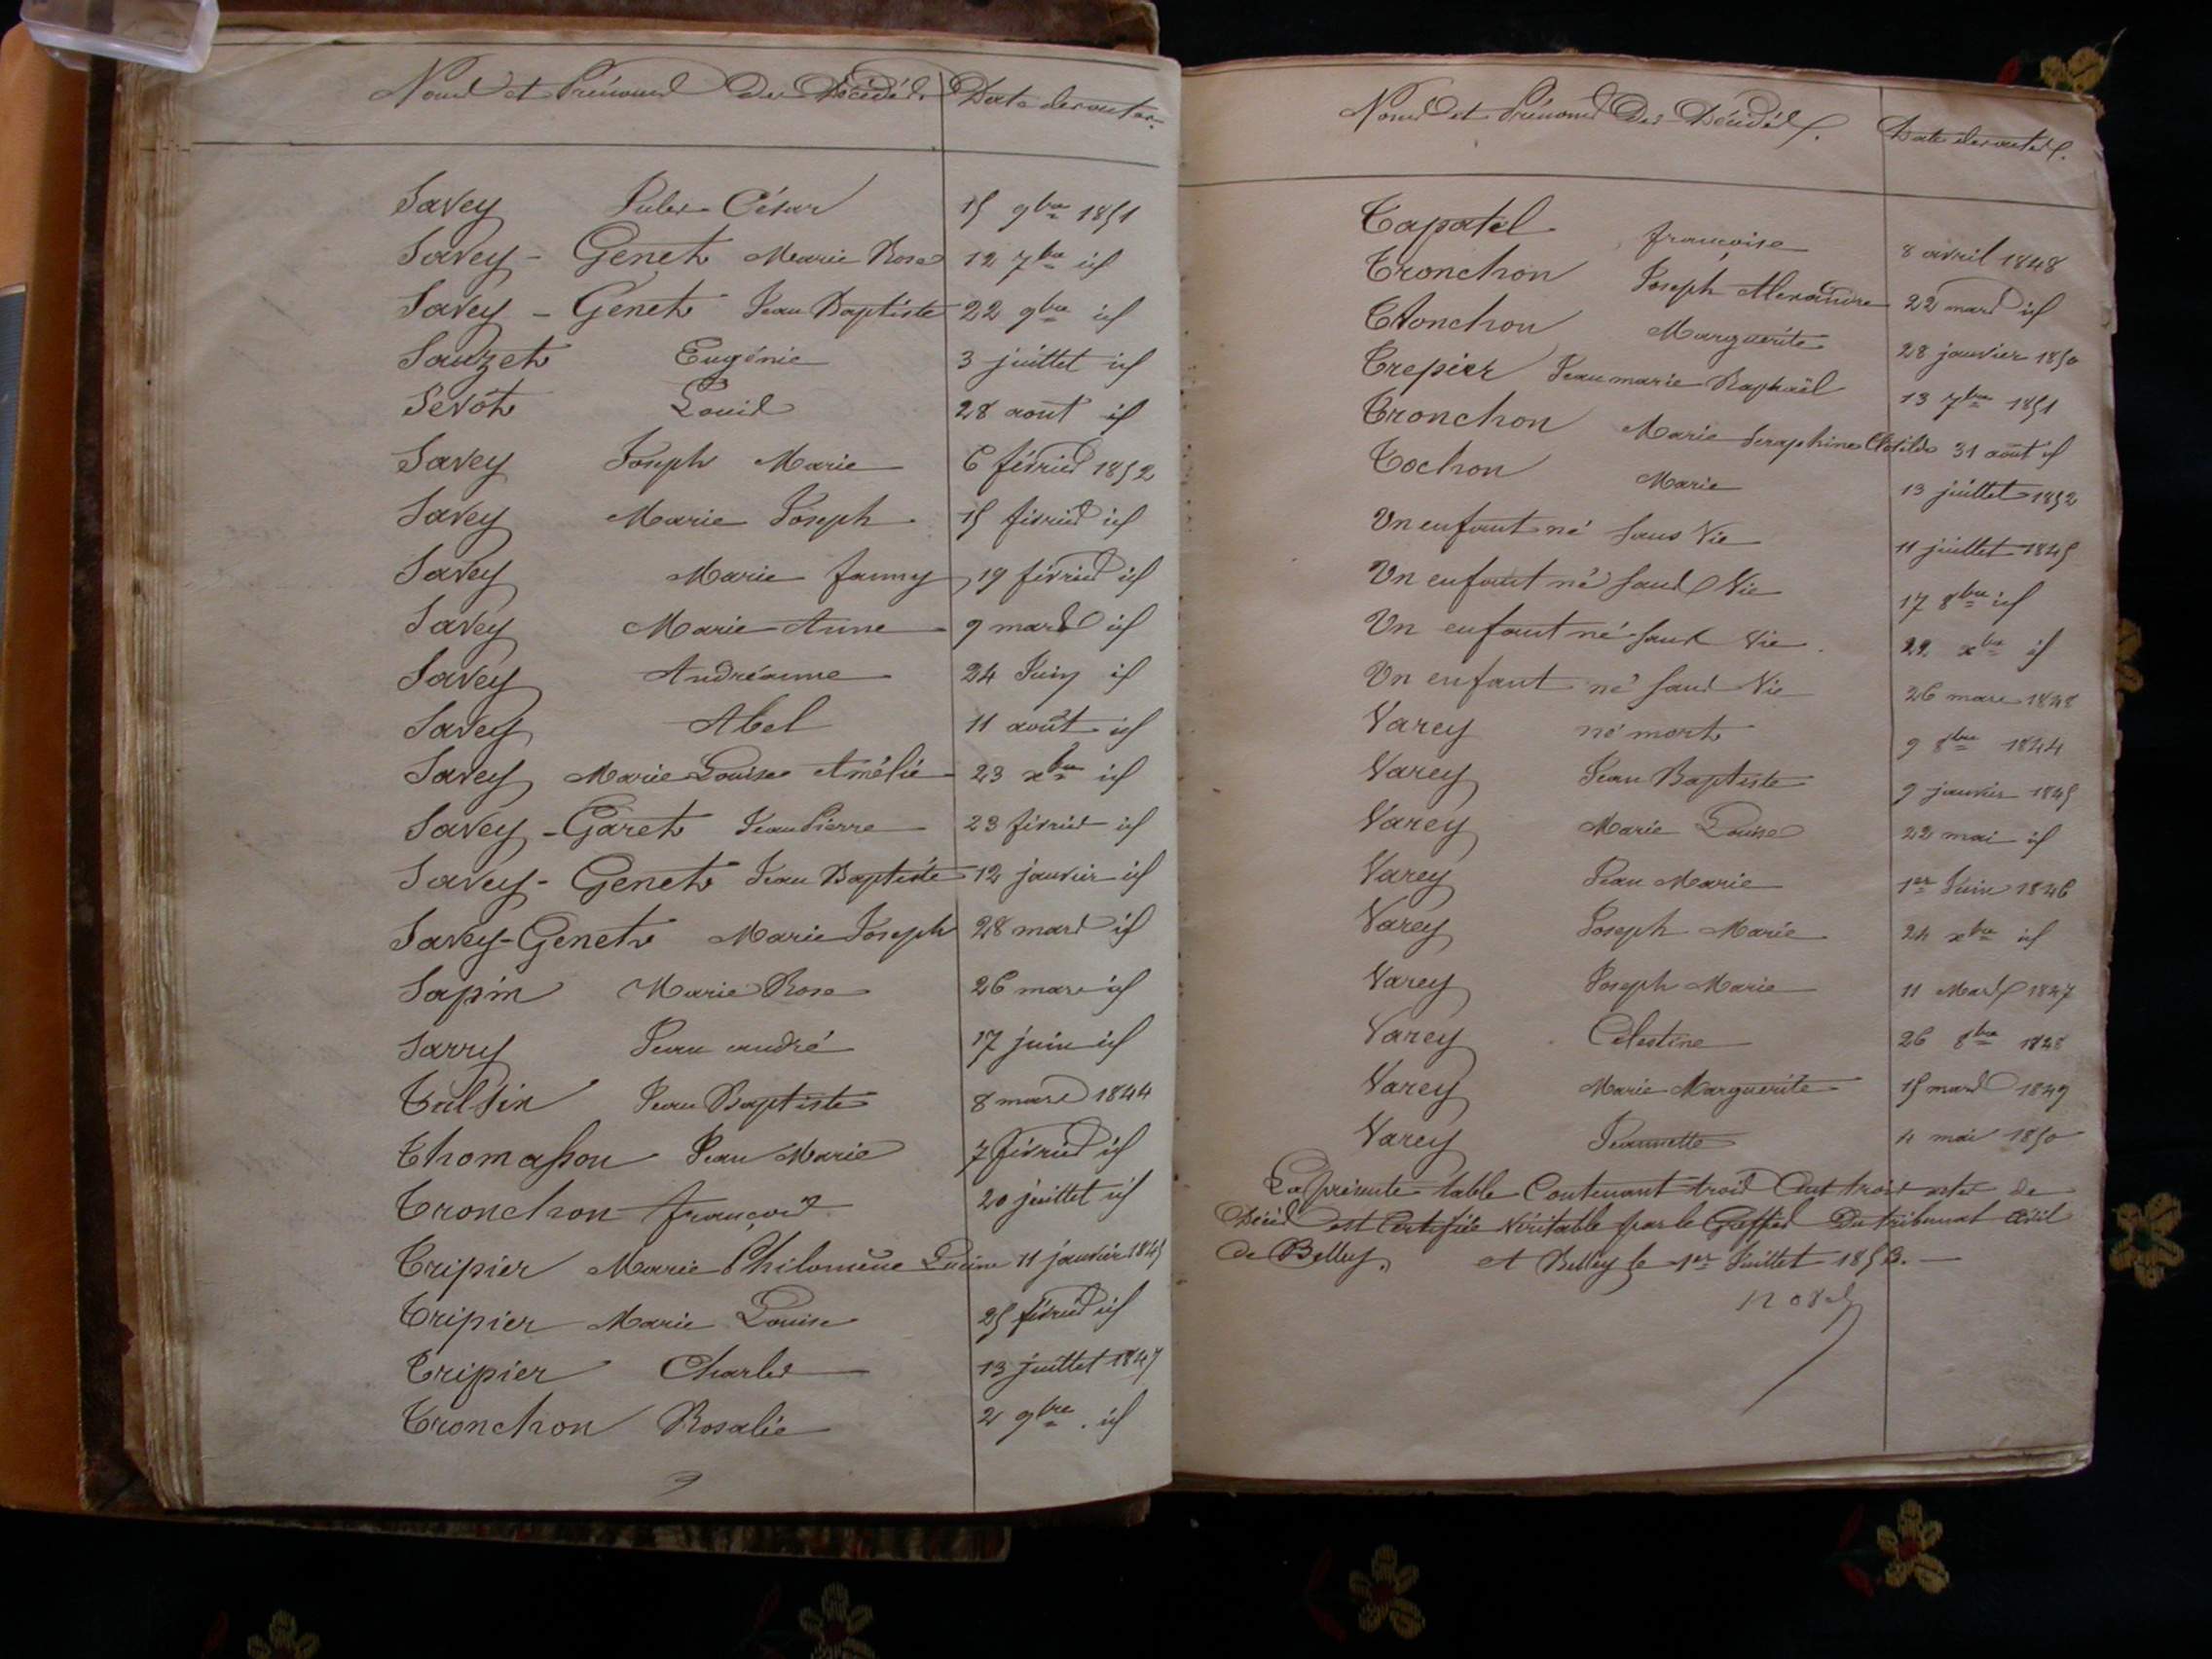 Noms et Prénoms Des Décédés Date des actes
Savey Jules César 15 9bre 1851
Savey - Genet Marie Rose 12 7bre id
Savey - Genet Jean Baptiste 22 9bre id
Sauzet Eugénie 3 juillet id
Sevoz Louis 28 août id
Savey Joseph Marie 6 février 1852
Savey Marie Joseph 15 février id
Savey Marie fanny 19 février id
Savey Marie Anne 9 mars id
Savey Andréanne 24 Juin id
Savey Abel 11 août id
Savey Marie Louise Amélie 23 xbre id
Savey - Garet Jean Pierre 23 février id
Savey - Genet Jean Baptiste 12 janvier id
Savey-Genet Marie Joseph 28 mars id
Sapin Marie Rose 26 mars id
Sarry Jean andré 17 juin id
Jean Baptiste 8 mars 1844
Thomasson Jean Marie 7 février id
Tronchon françois 20 juillet id
Tripier Marie Philomène 11 janvier 1845
Tripier Marie Louise 25 février id
Tripier Charles 13 juillet 1847
Tronchon Rosalie 2 9bre id
Noms et Prénoms Des Décédés. Date des actes.
Tapatel françoise 8 avril 1848
Tronchon Joseph Alexandre 22 mars id
Tronchon Marguerite 28 janvier 1850
Trepier Jean marie Raphaël 13 7bre 1851
Tronchon Marie Seraphine Clotilde 31 août id
Tochon Marie 13 juillet 1852
Un enfant né sans Vie 11 juillet 1845
Un enfant né sans Vie 17 8bre id
Un enfant né sans Vie 22 xbre id
Un enfant né sans Vie 26 mars 1848
Varey né mort 9 8bre 1844
Varey Jean Baptiste 9 janvier 1845
Varey Marie Louise 22 mai id
Varey Jean Marie 1er Juin 1846
Varey Joseph Marie 24 xbre id
Varey Joseph Marie 11 Mars 1847
Varey Célestine 26 8bre 1848
Varey Marie Marguerite 15 mars 1849
Varey Jeannette 4 mai 1850
La présente table Contenant trois Cent trois actes de
Décès est Certifiée Véritable par le Greffier Du tribunal Civil
de Belley. et Belley le 1er Juillet 1853.